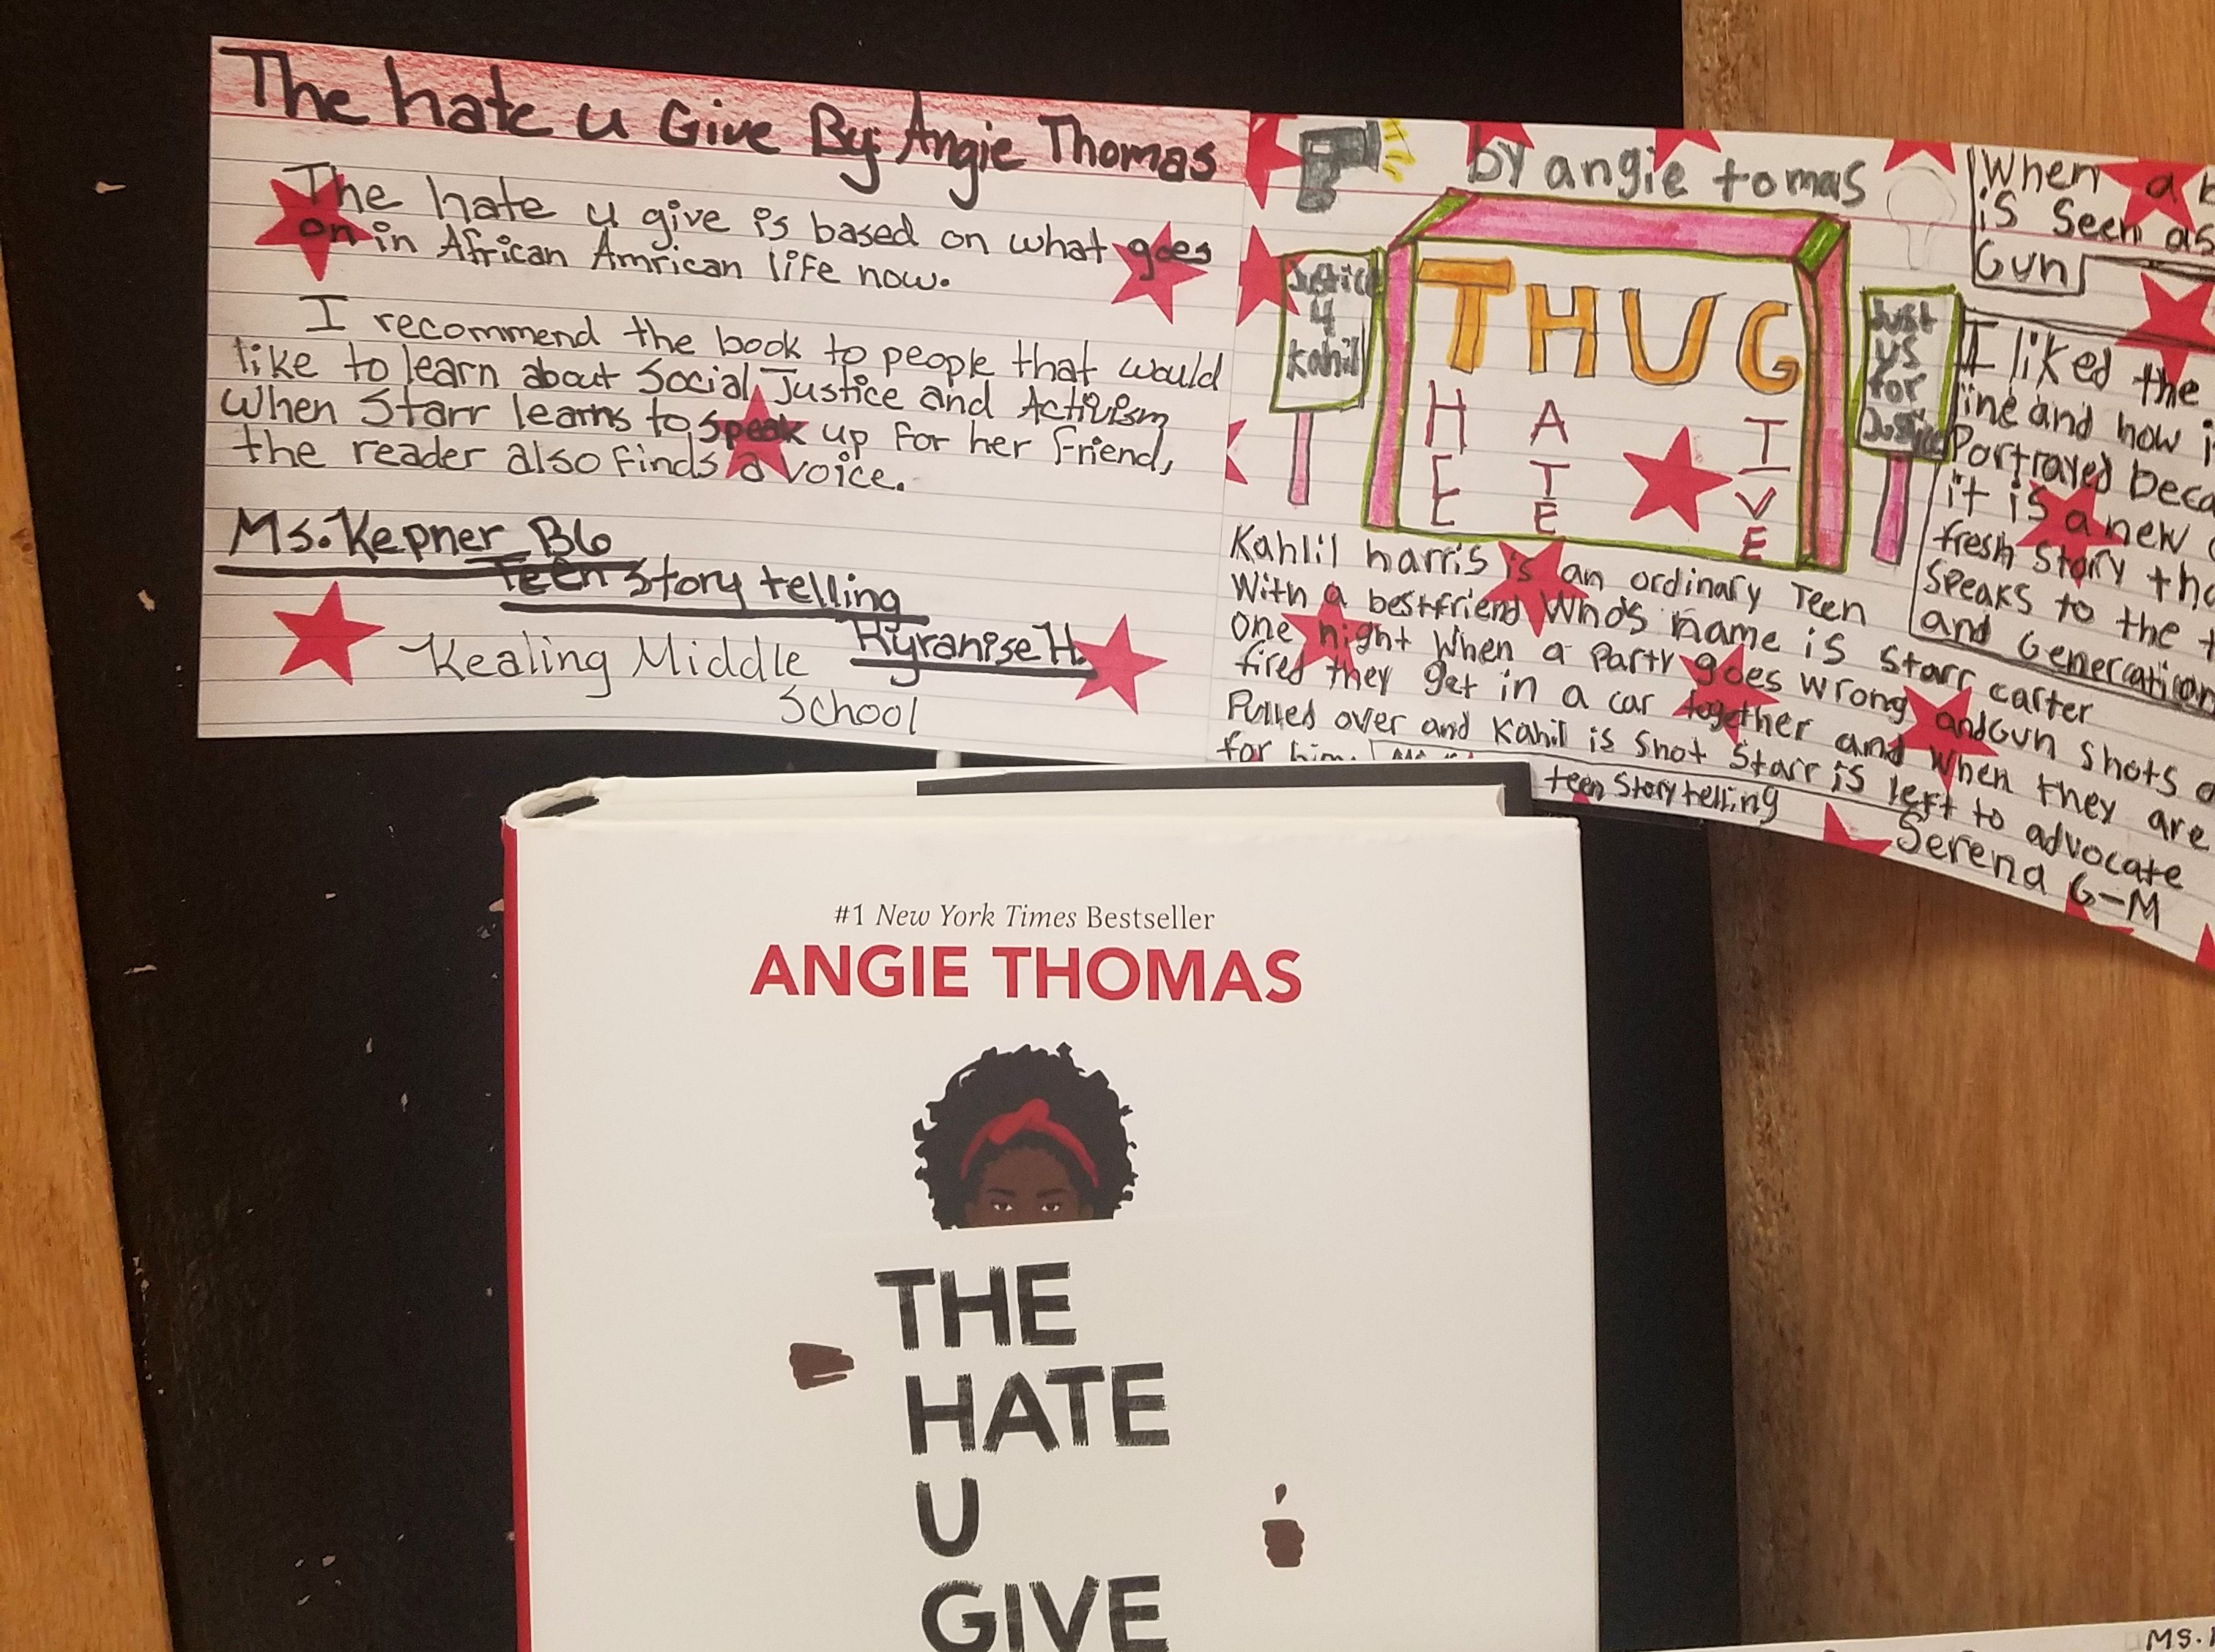 The hate u Give By: Angie Thomas
The hate u give is based on what goes
on in African Amrican life now.
I recommend the book to people that would
like to learn about Social Justice and Activism
When Starr learns to speak up for her friend,
the reader also finds a voice.
Ms. Kepner B6
Teen Story telling
Kyranise H.
Kealing Middle
School
by angie tomas
Justice
4
Kahil
THUG
H A I
E T V
E E
Just
us
for
When a
is seen as
Gun
I liked the
line and how
Portrayed
it is a new
fresh story
speaks to the
and
Kahlil harris is an ordinary Teen
With a bestfriend Who's name is Starr carter
one night When a Party goes wrong and Gun shots
fired they get in a car together and When they are
Pulled over and Kahil is shot Starr is left to advocate
for him.
teen Story telling
Serena G-M
#1 New York Times Bestseller
ANGIE THOMAS
THE
HATE
U
GIVE
MS.